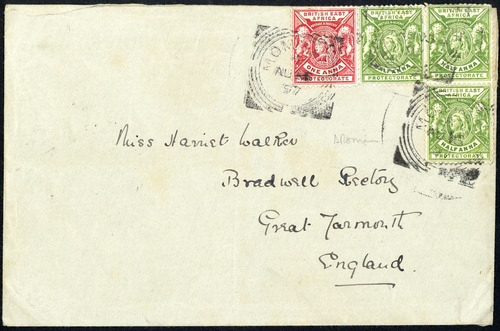 BRITISH EAST
AFRICA
ONE ANNA
PROTECTORATE
BRITISH EAST
AFRICA
HALF ANNA
PROTECTORATE
BRITISH EAST
AFRICA
HALF ANNA
BRITISH EAST
AFRICA
HALF ANNA
PROTECTORATE
MOM
97
Miss Harriet Walker
Bradwell Rectory
Great Yarmouth
England.